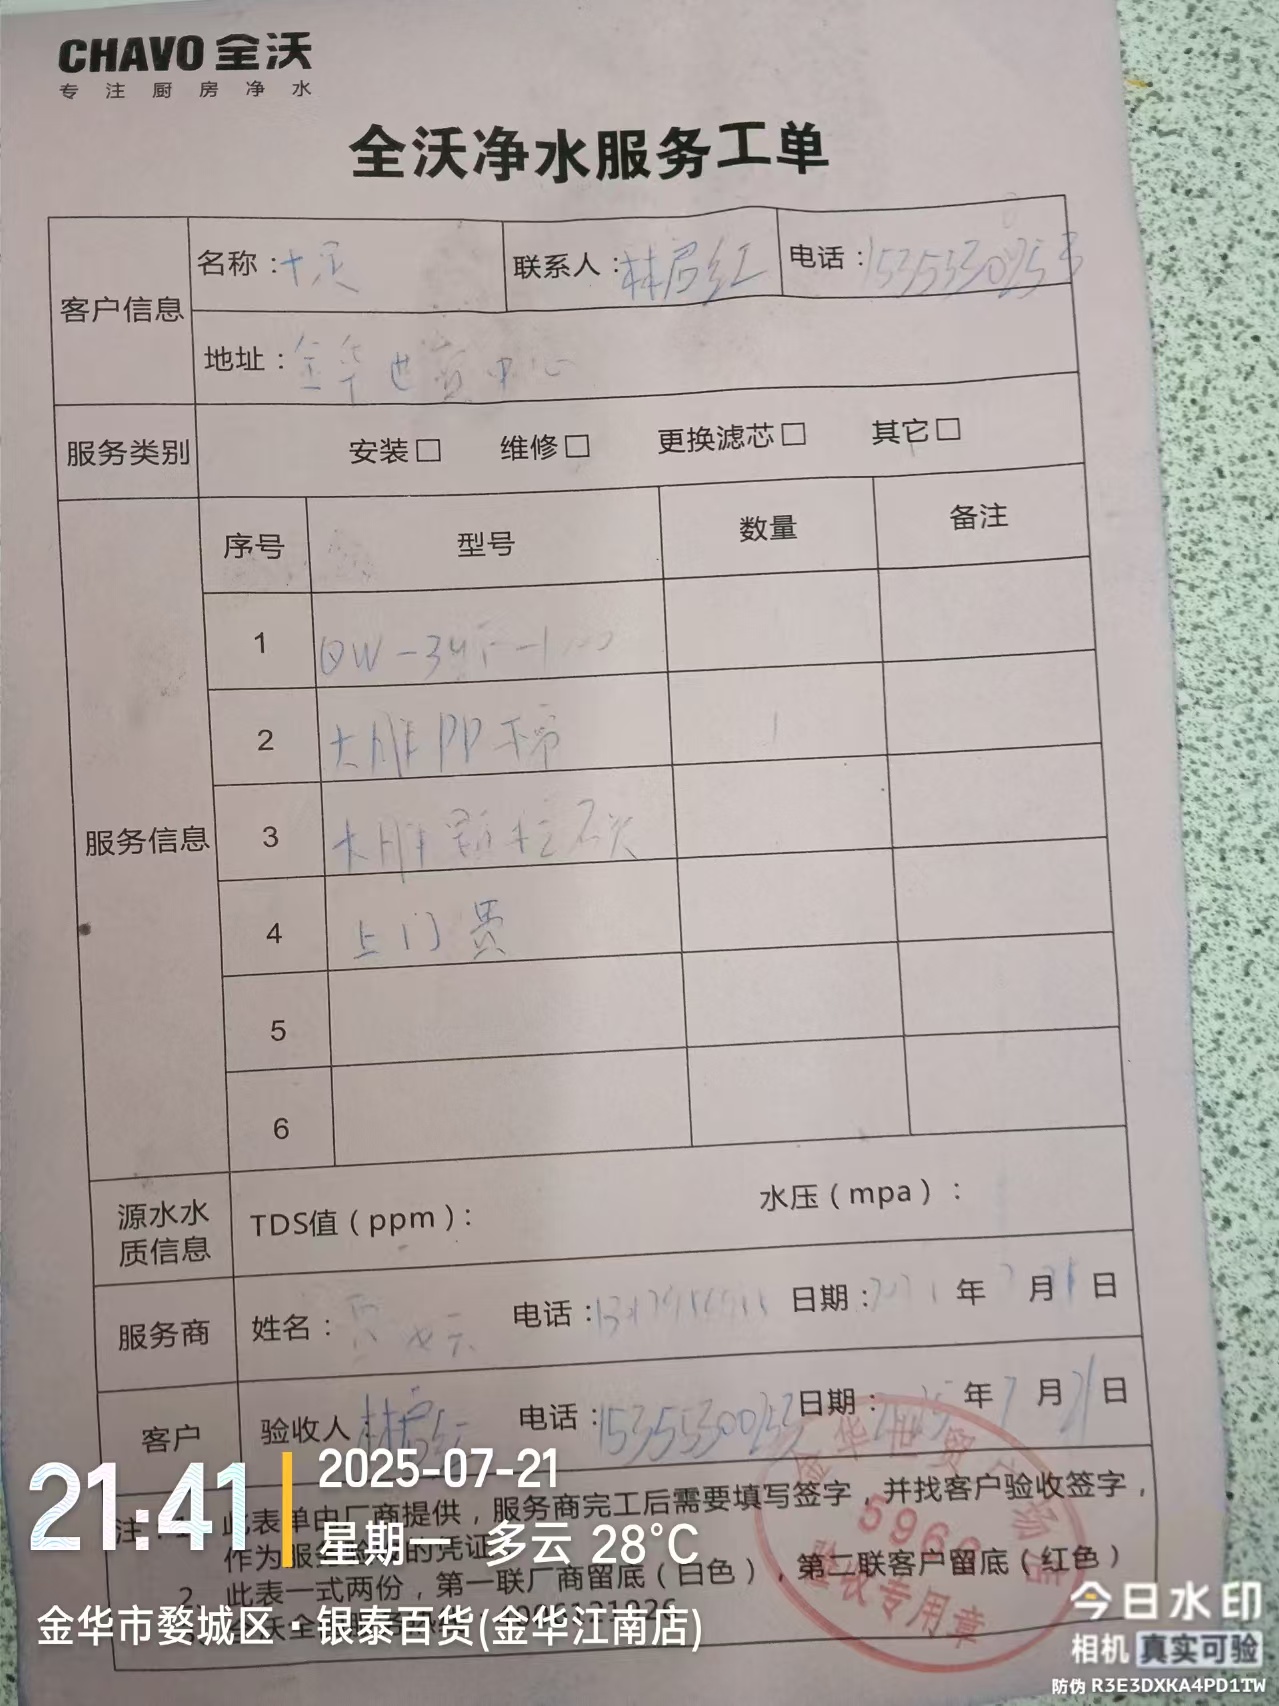 CHAVO 全沃
专注厨房净水
全沃净水服务工单
客户信息
名称：
联系人：林启红
电话：
地址：金华世贸中心
服务类别
安装□ 维修□ 更换滤芯□ 其它□
服务信息
序号 型号 数量 备注
1
2 大胖PP棉 1
3 大胖颗粒炭
4 上门费
5
6
源水水质信息
TDS值（ppm）： 水压（mpa）：
服务商
姓名： 电话： 日期： 年 7月21日
客户
验收人 电话：15355300253 日期：2025年7月21日
注：
此表单由厂商提供，服务商完工后需要填写签字，并找客户验收签字，
作为服务 的凭证
2、此表一式两份，第一联厂商留底（白色），第二联客户留底（红色）
金华世贸
596
验收专用章
21:41
2025-07-21
星期一 多云 28°C
金华市婺城区·银泰百货(金华江南店)
今日水印
相机 真实可验
防伪 R3E3DXKA4PD1TW